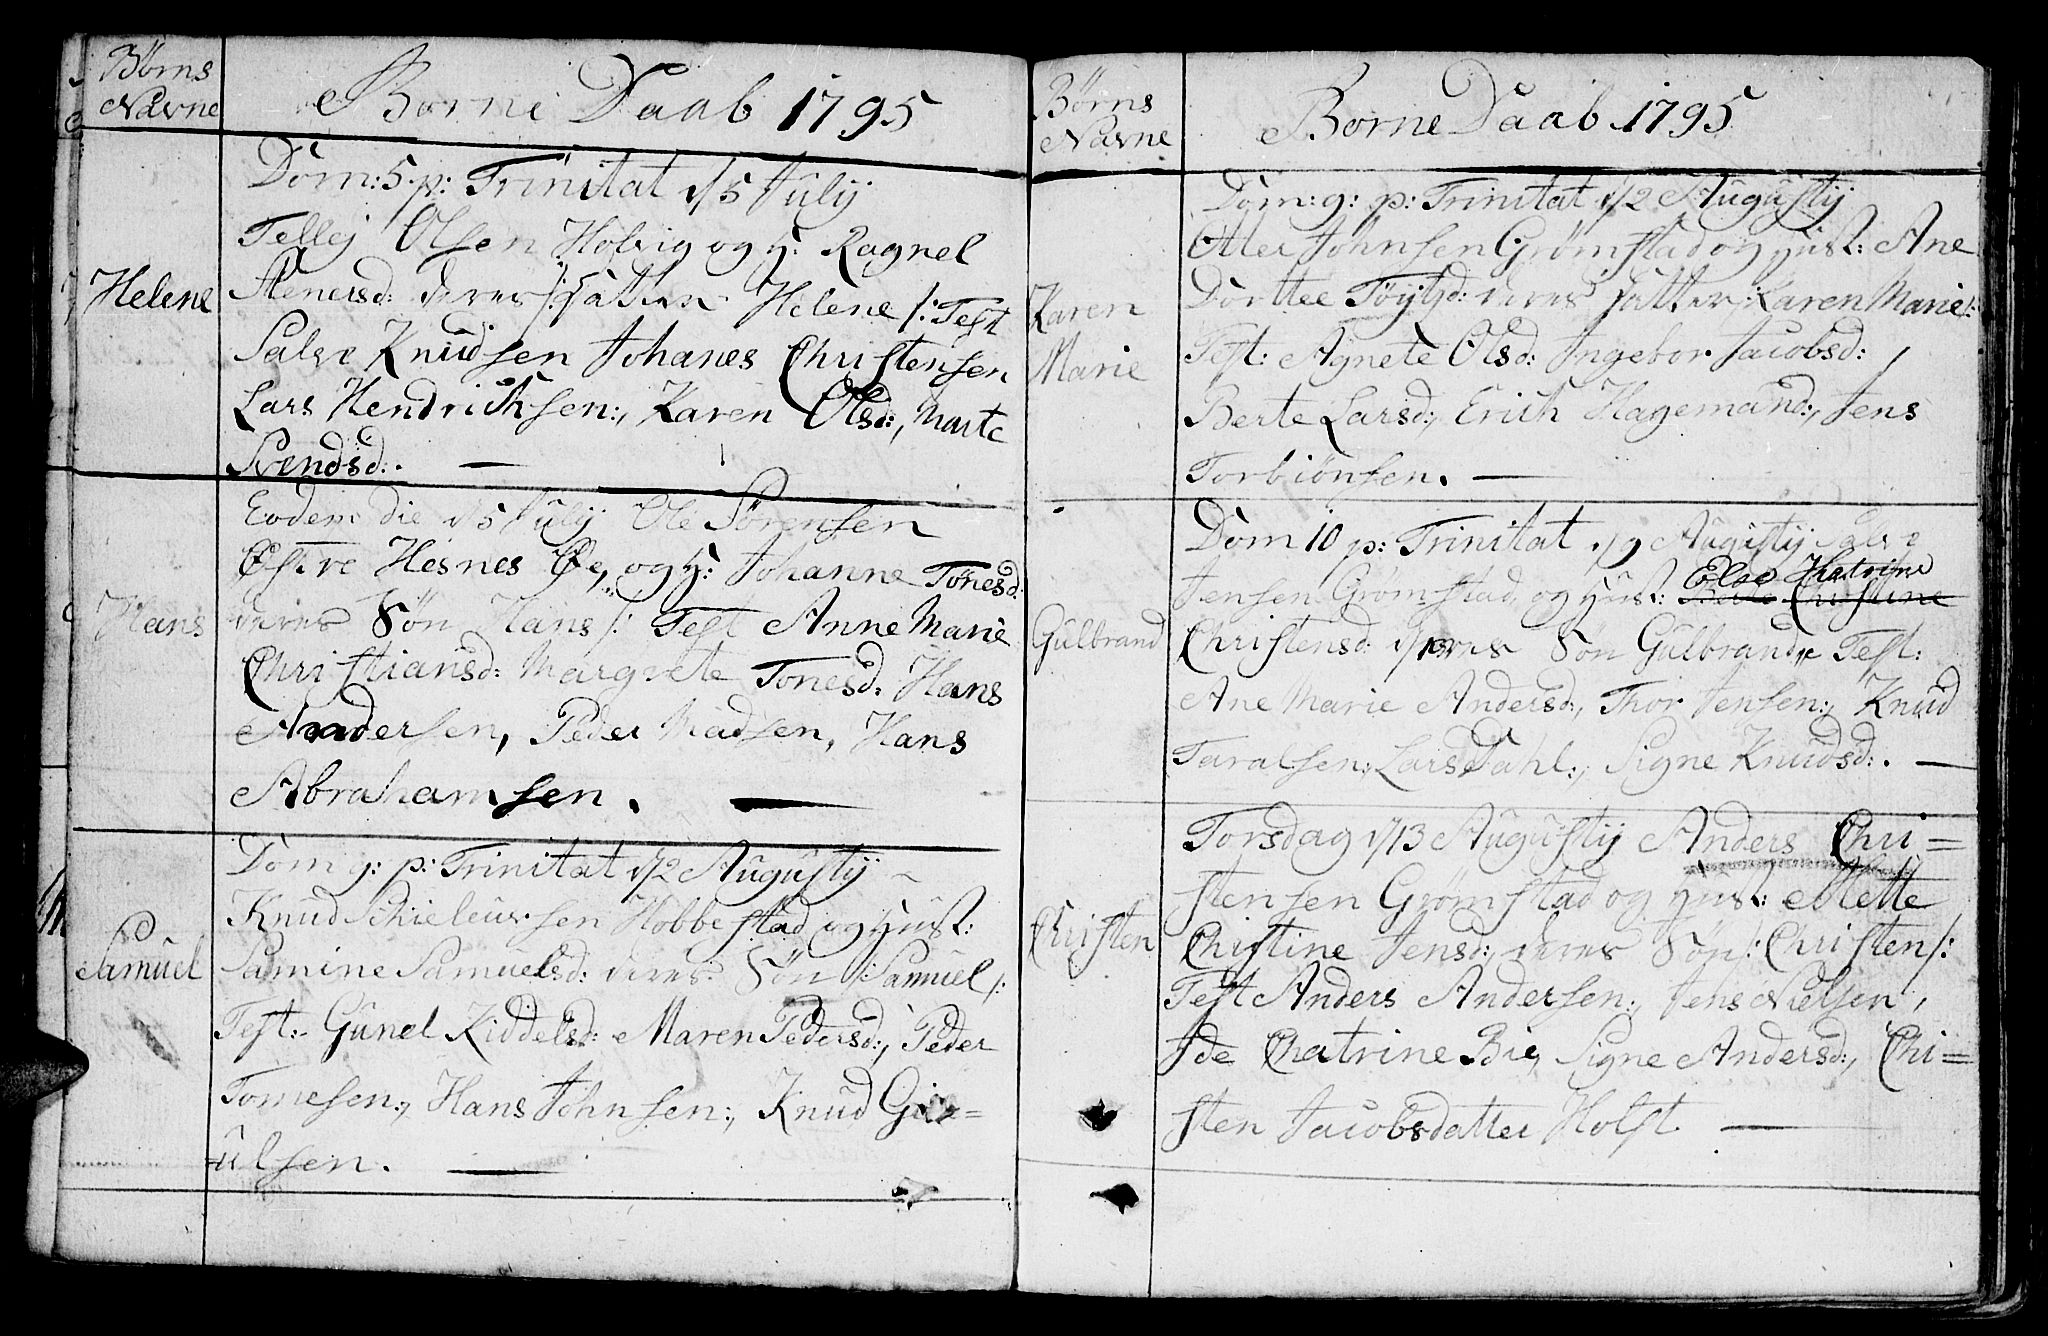 Børns
Navne
Børne Daab 1795
Helene
Dom: 5. p: Trinitat d/5 Julij
Tellej Olsen Holvig og H: Ragnel
Stenersd: deres /: datter Helene /: Test
Salve Knudsen Johanes Christensen
Lars Hendrichsen:, Karen Olsd:, Marte
Svendsd:. —
Hans
Eodem die d/5 Julij Ole Sørensen
Østre Hesnes Øe, og H: Johanne Tønesd:
deres Søn Hans /: Test Anne Marie
Christiansd: Margrete Tonesd: Hans
Andersen, Peder Madsen, Hans
Abrahamsen. —
Samuel
Dom 9: p: Trinitat d/2 Augustij
Knud Schieleursen Hobbestad og Hust:
Samine Samuelsd: deres Søn /: Samuel /:
Test:- Gunel Kiddelsd: Maren Pedersd:, Peder
Tomesen:, Hans Johnsen:, Knud
ulsen. —
Børns
Navne
Børne Daab 1795
Karen
Marie
Dom: 9: p: Trinitat d/2 Augustij
Otter Johnsen Grømstad og Hust: Ane
Dorttee deres datter /: Karen Marie /:
Test: Agnete Olsd: Ingebor Jacobsd:,
Berte Larsd:, Erich Hagemand:, Jens
Torbiønsen. —
Gulbrand
Dom 10 p: Trinitat d/9 Augustij Salve
Jensen Grømstad, og Hust: Else Chatrine
Christensd: deres Søn Gulbrand Test:
Ane Marie Andersd:, Thor Jensen:, Knud
Taralsen:, Lars Dahl:, Signe Knudsd:. —
Christen
Torsdag d/13 Augustij Anders Chri=
stensen Grømstad og Hust: Mette
Christine Jensd: deres Søn /: Christen /:
Test Anders Andersen:, Jens Nielsen,
Ide Chatrine Bie, Signe Andersd:, Chi=
sten Jacobsdatter Holst. —